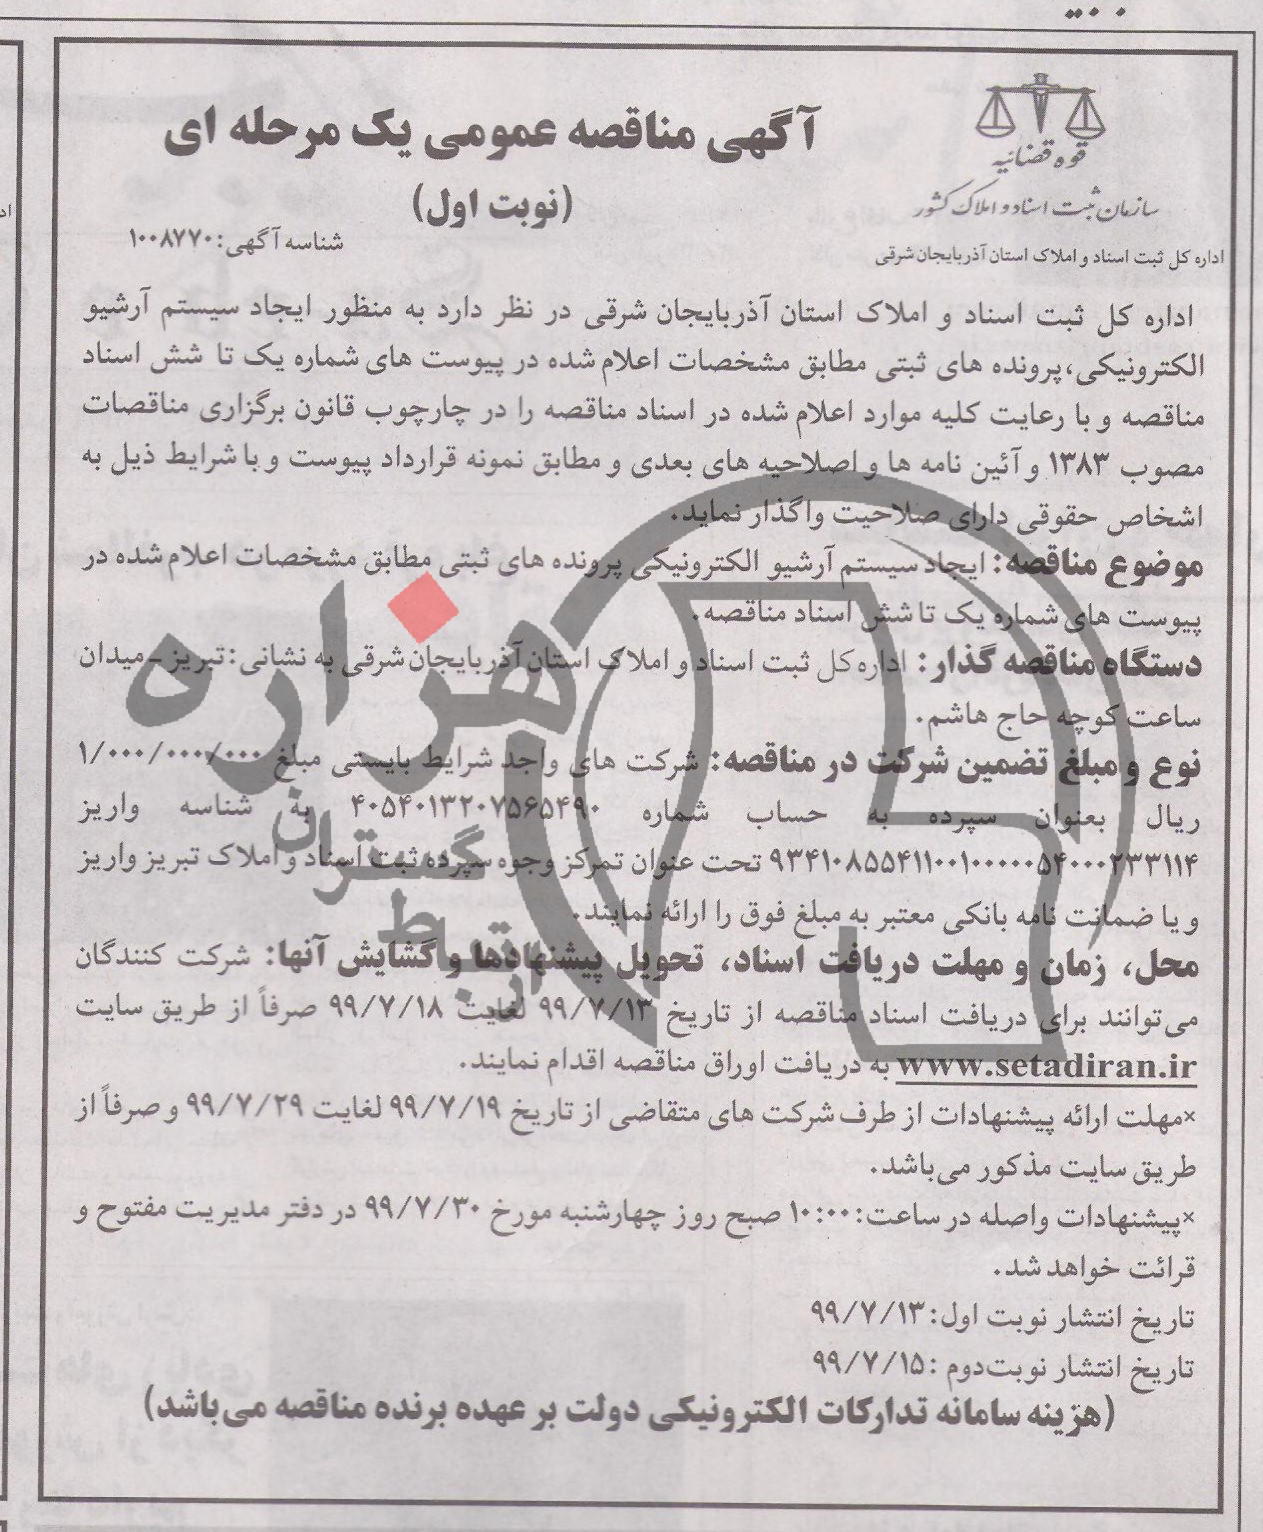 قوه قضائیه
سازمان ثبت اسناد و املاک کشور
اداره کل ثبت اسناد و املاک استان آذربایجان شرقی
آگهی مناقصه عمومی یک مرحله ای
(نوبت اول)
شناسه آگهی: ۱۰۰۸۷۷۰
اداره کل ثبت اسناد و املاک استان آذربایجان شرقی در نظر دارد به منظور ایجاد سیستم آرشیو
الکترونیکی،پرونده های ثبتی مطابق مشخصات اعلام شده در پیوست های شماره یک تا شش اسناد
مناقصه و با رعایت کلیه موارد اعلام شده در اسناد مناقصه را در چارچوب قانون برگزاری مناقصات
مصوب ۱۳۸۳ و آئین نامه ها و اصلاحیه های بعدی و مطابق نمونه قرارداد پیوست و با شرایط ذیل به
اشخاص حقوقی دارای صلاحیت واگذار نماید.
موضوع مناقصه: ایجاد سیستم آرشیو الکترونیکی پرونده های ثبتی مطابق مشخصات اعلام شده در
پیوست های شماره یک تا شش اسناد مناقصه.
دستگاه مناقصه گذار: اداره کل ثبت اسناد و املاک استان آذربایجان شرقی به نشانی: تبریز-میدان
ساعت کوچه حاج هاشم.
نوع و مبلغ تضمین شرکت در مناقصه: شرکت های واجد شرایط بایستی مبلغ ۱/۰۰۰/۰۰۰/۰۰۰
ریال بعنوان سپرده به حساب شماره ۴۰۵۴۰۱۳۲۰۷۵۶۵۴۹۰ به شناسه واریز
۹۳۴۱۰۸۵۵۴۱۱۰۰۱۰۰۰۰۰۵۴۰۰۰۲۳۳۱۱۴ تحت عنوان تمرکز وجوه سپرده ثبت اسناد و املاک تبریز واریز
و یا ضمانت نامه بانکی معتبر به مبلغ فوق را ارائه نمایند.
محل، زمان و مهلت دریافت اسناد، تحویل پیشنهادها و گشایش آنها: شرکت کنندگان
می‌توانند برای دریافت اسناد مناقصه از تاریخ ۹۹/۷/۱۳ لغایت ۹۹/۷/۱۸ صرفاً از طریق سایت
www.setadiran.ir به دریافت اوراق مناقصه اقدام نمایند.
×مهلت ارائه پیشنهادات از طرف شرکت های متقاضی از تاریخ ۹۹/۷/۱۹ لغایت ۹۹/۷/۲۹ و صرفاً از
طریق سایت مذکور می‌باشد.
×پیشنهادات واصله در ساعت: ۱۰:۰۰ صبح روز چهارشنبه مورخ ۹۹/۷/۳۰ در دفتر مدیریت مفتوح و
قرائت خواهد شد.
تاریخ انتشار نوبت اول: ۹۹/۷/۱۳
تاریخ انتشار نوبت‌دوم: ۹۹/۷/۱۵
(هزینه سامانه تدارکات الکترونیکی دولت بر عهده برنده مناقصه می‌باشد)
هزاره
گستران
ارتباط